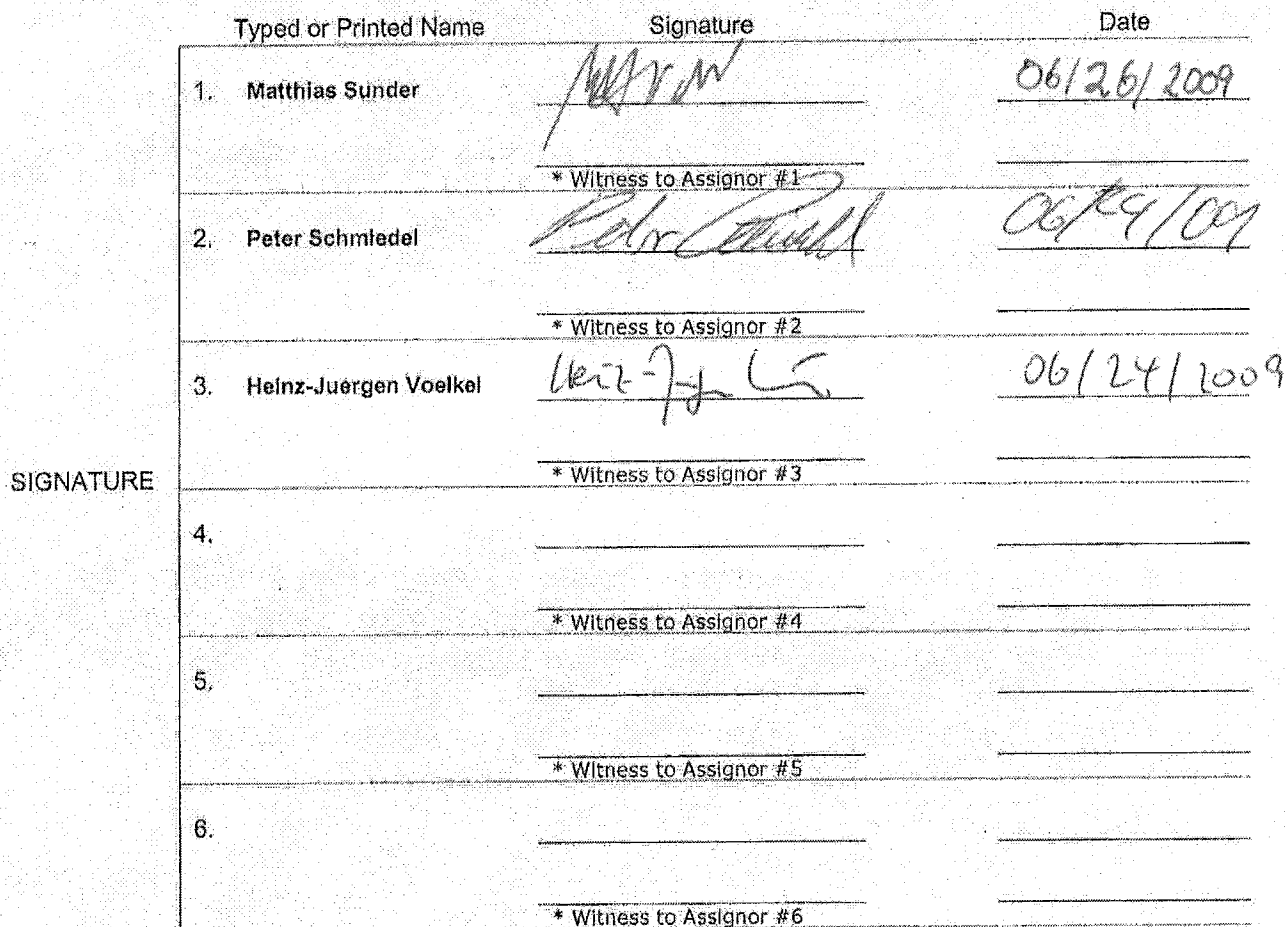 Typed or Printed Name Signature Date
1. Matthias Sunder 06/26/2009
* Witness to Assignor #1
2. Peter Schmiedel Peter 06/24/09
* Witness to Assignor #2
3. Heinz-Juergen Voelkel Heinz-Jürgen 06/24/2009
* Witness to Assignor #3
SIGNATURE
4.
* Witness to Assignor #4
5.
* Witness to Assignor #5
6.
* Witness to Assignor #6